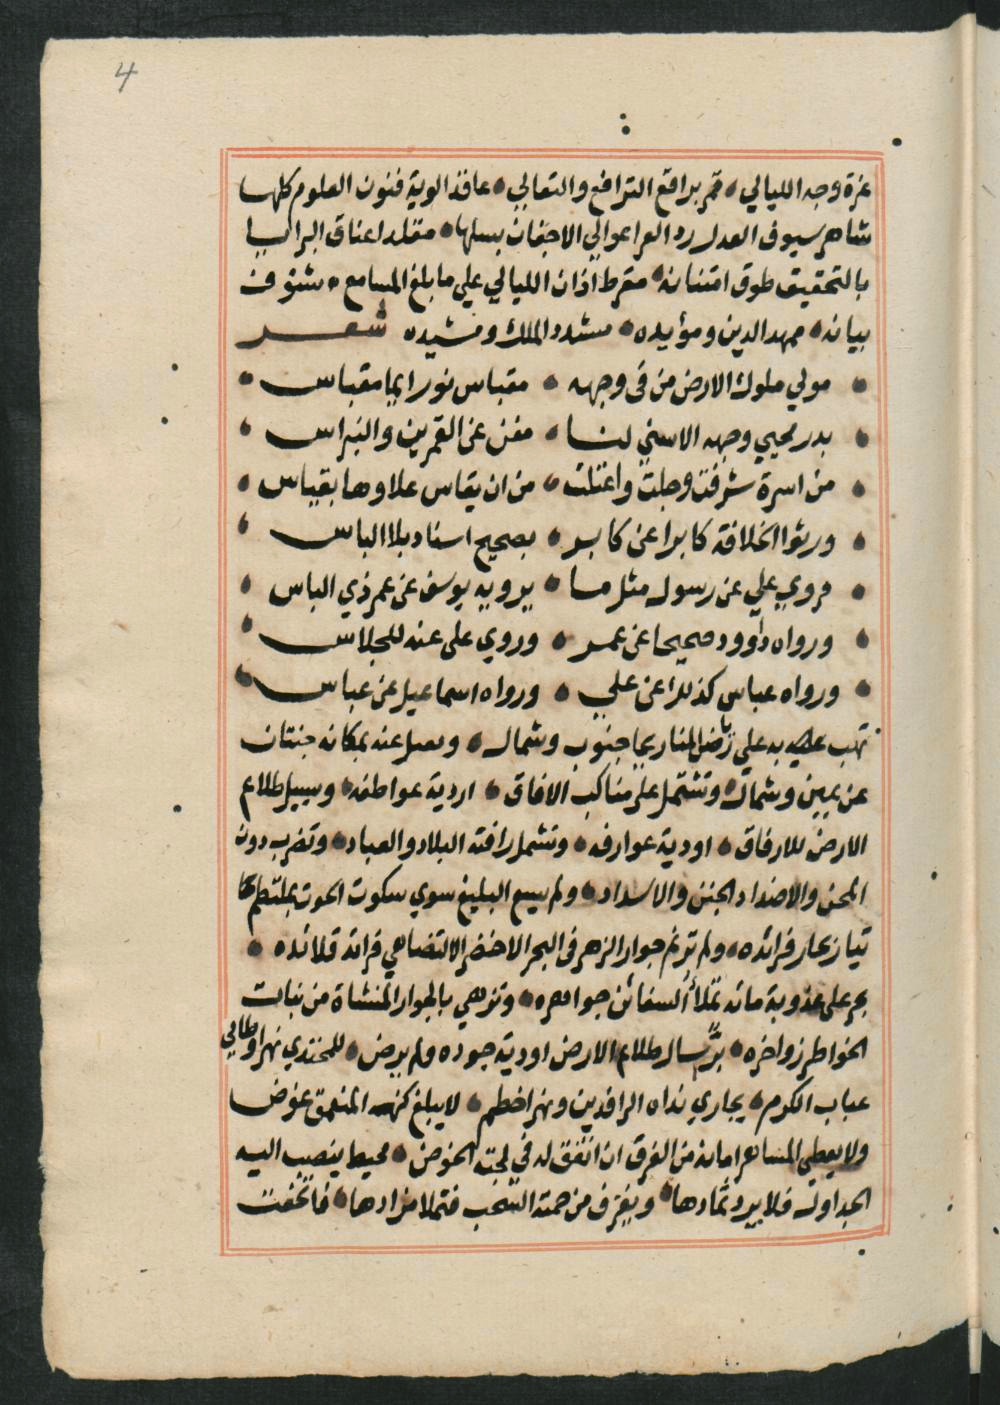 4
غرة وجه الليالي • قمر براقع الترافع والتعالي • عاقد الوية فنون العلوم كلها
شاهر سيوف العدل رد العرا عوالي الاجفان بسلها • مقلد اعناق البرايا
بالتحقيق طوق امتنانه • مقرط اذان الليالي علي ما بلغ المسامع • شنوف
بيانه • ممهد الدين ومؤيده • مسدد الملك ومشيده شعر
• مولي ملوك الارض من في وجهه • مقباس نور ايما مقباس •
• بدر محيي وجهه الاسني لنا • مغن عن القمرين والنبراس •
• من اسرة شرفت وجلت واعتلت • من ان يقاس علاوها بقياس •
• ورثوا الخلافة كابرا عن كابر • بصحيح اسناد بلا الباس •
• فروي علي عن رسول مثل ما • يرويه يوسف عن عمر ذي الباس •
• ورواه داوود صحيحا عن عمر • وروي علي عنه للجلاس •
• ورواه عباس كذلك عن علي • ورواه اسماعيل عن عباس •
تهب به علي المنار بحا جنوب وشمال • وبمكانه جنتان
عن يمين وشمال • وتشتمل علي مناكب الافاق • اردية عواطفه • وسيسيل طلاع
الارض للارفاق • اودية عوارفه • وتشمل رافته البلاد والعباد • وتضرب دون
المحن والاضداد الجنن والاسداد • ولم يسع البليغ سوي سكوت الحوت بملتطم
تيار بحار فرائده • ولم ترتم جوار الزهر في البحر الاخضر الا لتضاهي فرائد قلائده •
بحر علي عذوبة مائه تملا السفائن جواهره • وتزهي بالجوار المنشاة من نبات
الخواطر زواخره • بر سال طلاع الارض اودية جوده ولم يرض • للمجتدي نهرا وطامي
عباب الكرم • يجاري نداه الرافدين ونهرا خطم • لا يبلغ كنهه المتعمق غوض
ولا يعطي الماهر امانه من الغرق ان اتفق له في لجته الخوض • محيط ينصب اليه
الجداول فلا يرد ثمادها • ويغترف من جمته السحب فتملا مزادها • فاتحفت